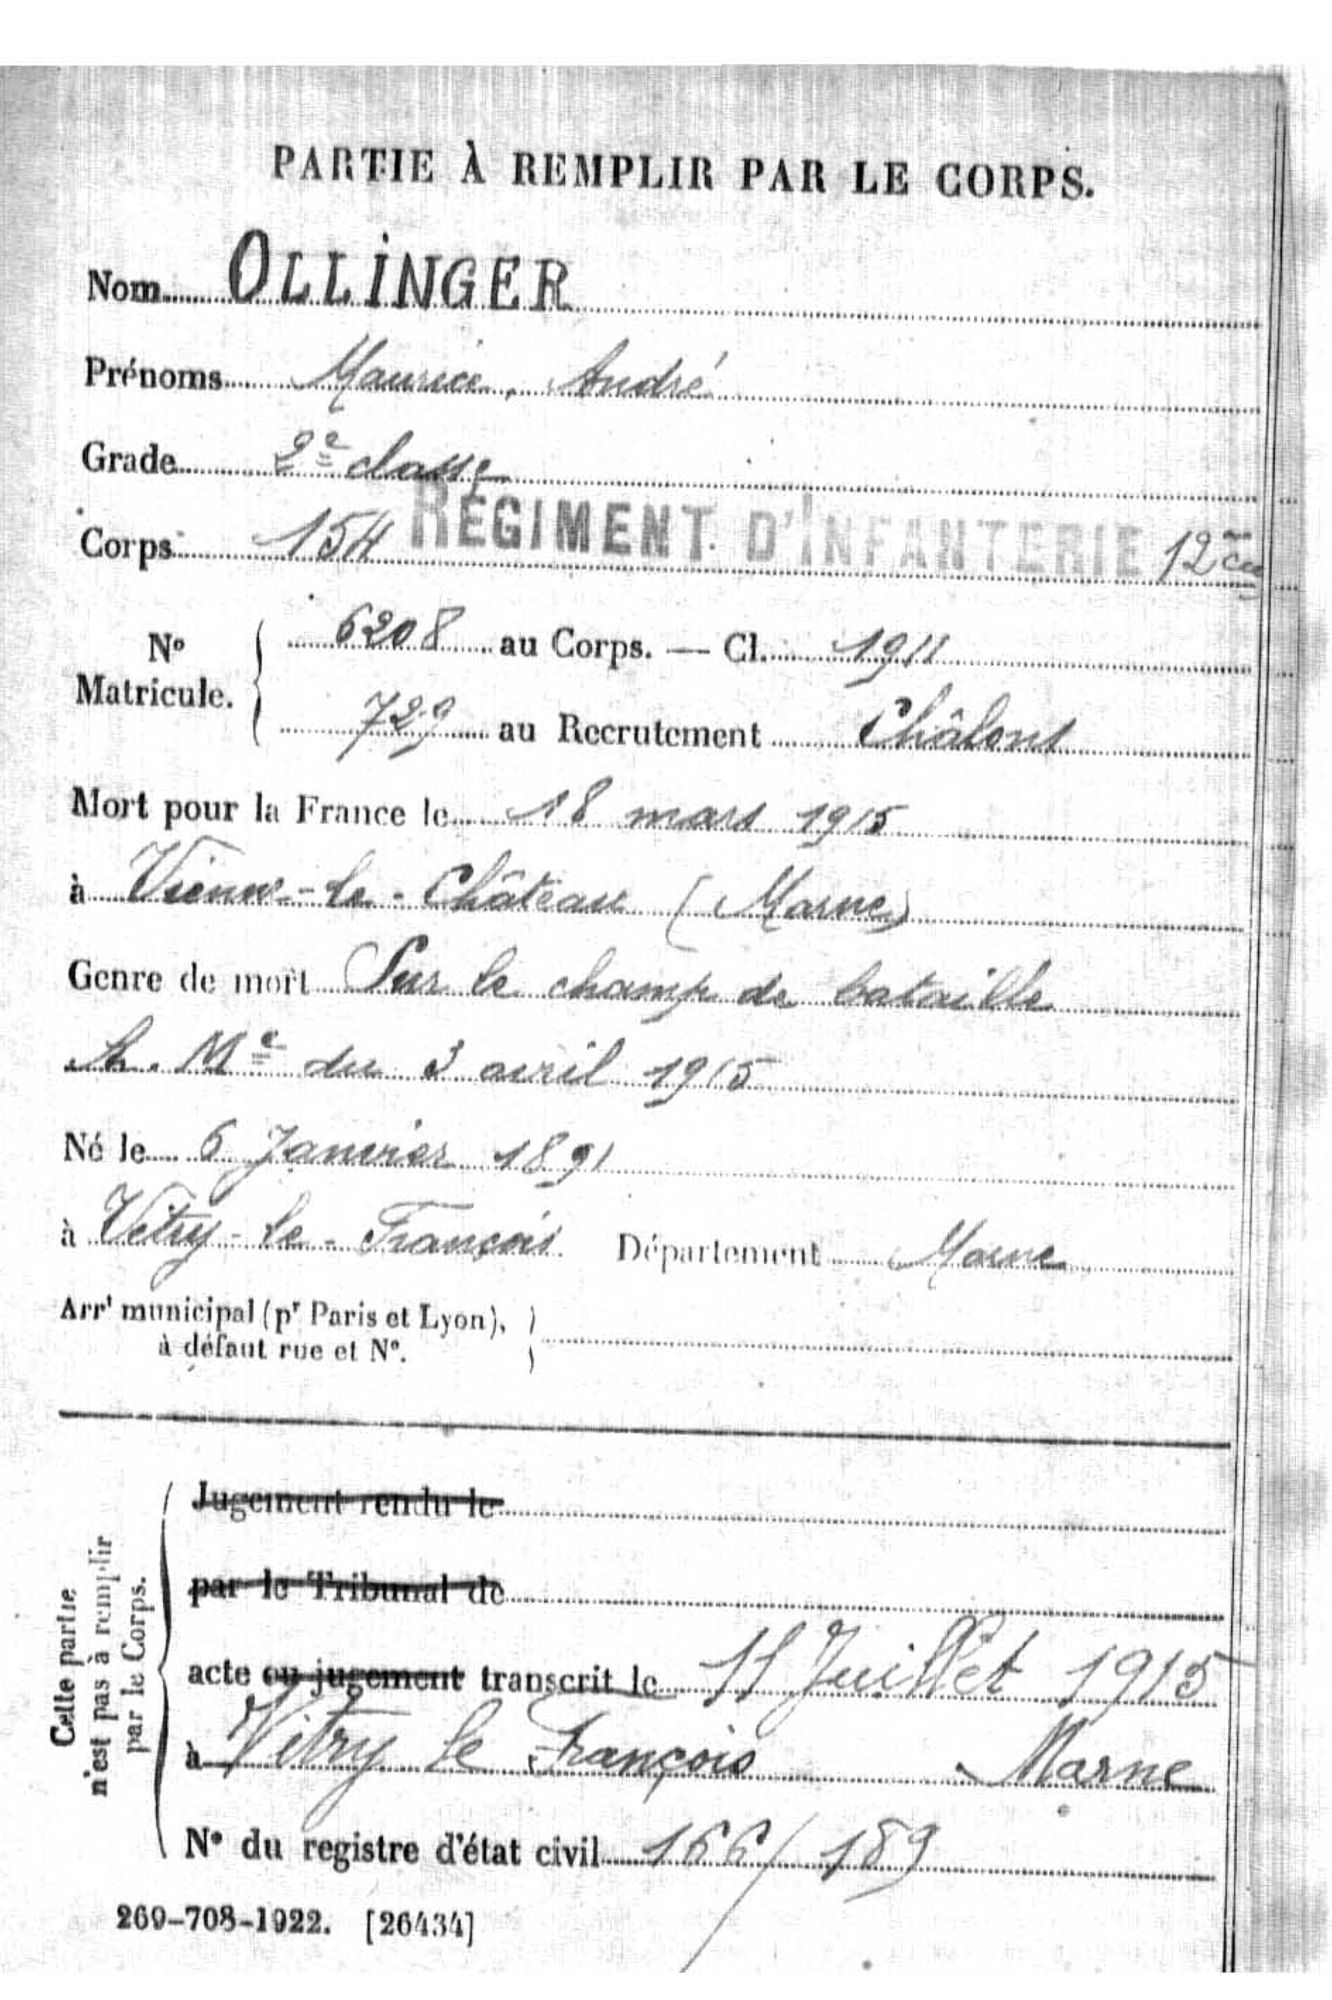 PARTIE À REMPLIR PAR LE CORPS.
Nom OLLINGER
Prénoms Maurice, André
Grade 2e classe
Corps 154 RÉGIMENT D'INFANTERIE 12e Cie
No
Matricule.
6208 au Corps. — Cl. 1911
729 au Recrutement Châlons
Mort pour la France le 18 mars 1915
à Vienne-le-Château (Marne)
Genre de mort Sur le champ de bataille
A. Me du 3 avril 1915
Né le 6 Janvier 1891
à Vitry-le-François Département Marne
Arrt municipal (pr Paris et Lyon),
à défaut rue et No.
Cette partie
n'est pas à remplir
par le Corps.
Jugement rendu le
par le Tribunal de
acte ou jugement transcrit le 11 Juillet 1915
à Vitry le François Marne
No du registre d'état civil 166/189
269-708-1922. [26434]